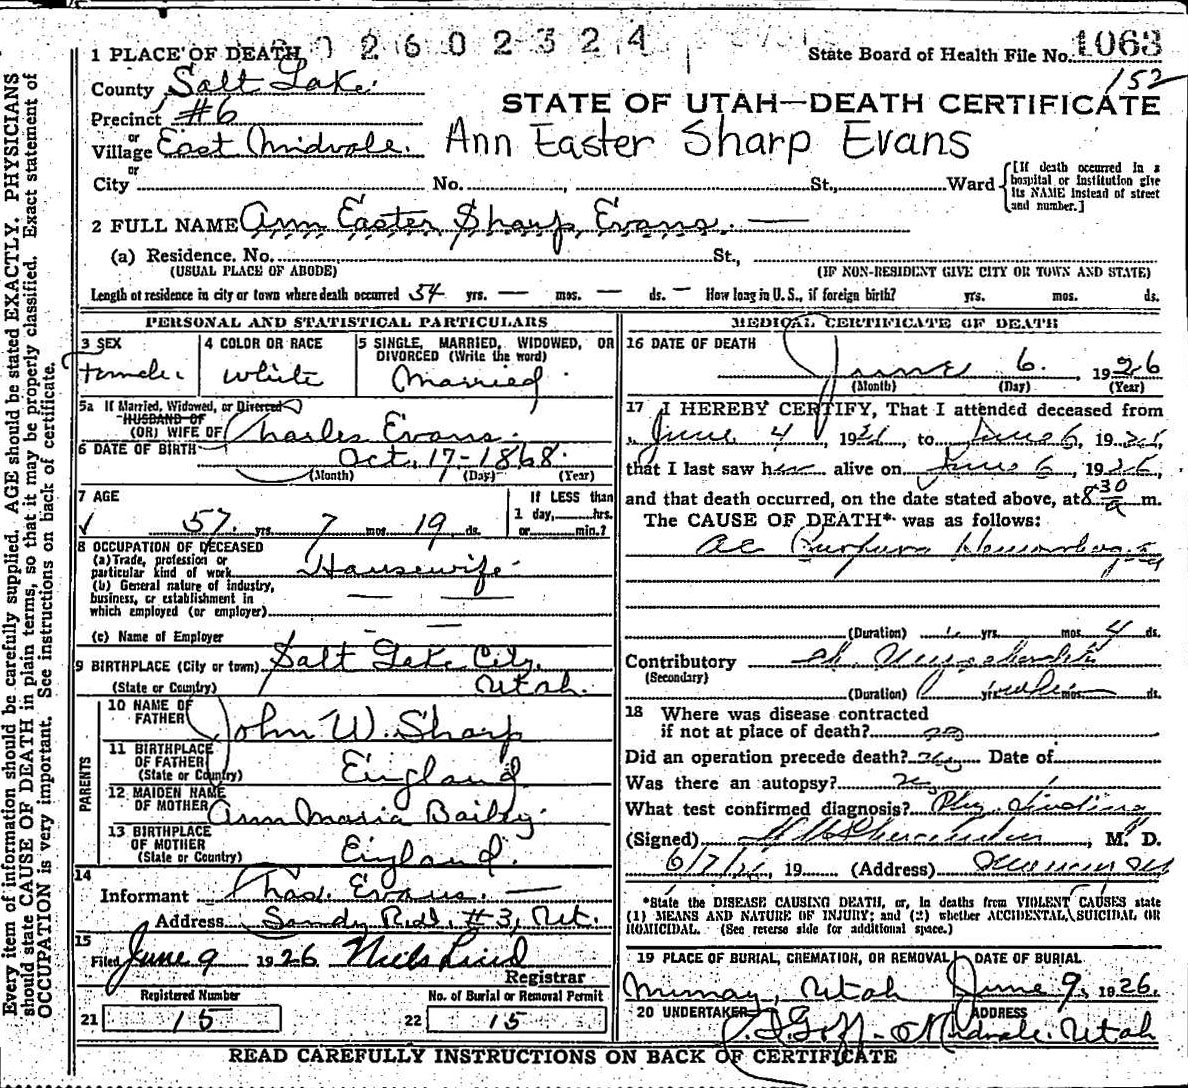 2602324
1 PLACE OF DEATH
State Board of Health File No. 1063
152
County Salt Lake.
STATE OF UTAH—DEATH CERTIFICATE
Precinct #6
or
Village East Midvale. Ann Easter Sharp Evans
or
City No. , St., Ward
[If death occurred in a hospital or institution give its NAME instead of street and number.]
2 FULL NAME Ann Easter Sharp Evans.
(a) Residence. No. St.,
(USUAL PLACE OF ABODE) (IF NON-RESIDENT GIVE CITY OR TOWN AND STATE)
Length of residence in city or town where death occurred 54 yrs. — mos. — ds. — How long in U. S., if foreign birth? yrs. mos. ds.
PERSONAL AND STATISTICAL PARTICULARS
3 SEX 4 COLOR OR RACE 5 SINGLE, MARRIED, WIDOWED, OR
DIVORCED (Write the word)
Female. White Married
5a If Married, Widowed, or Divorced
HUSBAND OF
(OR) WIFE OF Charles Evans.
6 DATE OF BIRTH Oct. 17-1868.
(Month) (Day) (Year)
7 AGE If LESS than
57. yrs. 7 mos. 19 ds. 1 day, hrs.
or min.?
8 OCCUPATION OF DECEASED
(a) Trade, profession or
particular kind of work Housewife.
(b) General nature of industry,
business, or establishment in
which employed (or employer)
(c) Name of Employer
9 BIRTHPLACE (City or town) Salt Lake City.
(State or Country) Utah.
PARENTS
10 NAME OF
FATHER John W. Sharp
11 BIRTHPLACE
OF FATHER
(State or Country) England
12 MAIDEN NAME
OF MOTHER Ann Maria Bailey.
13 BIRTHPLACE
OF MOTHER
(State or Country) England.
14
Informant Chas. Evans. —
Address Sandy R.d.1. #3, Ut.
15
Filed June 9 1926 Niels Lind
Registrar
Registered Number No. of Burial or Removal Permit
21 15 22 15
MEDICAL CERTIFICATE OF DEATH
16 DATE OF DEATH
June 6. 1926
(Month) (Day) (Year)
17 I HEREBY CERTIFY, That I attended deceased from
June 4, 1926, to June 6, 1926,
that I last saw her alive on June 6, 1926,
and that death occurred, on the date stated above, at 8 30 a m.
The CAUSE OF DEATH* was as follows:
ac Purpura Hemorrhagica
(Duration) yrs. mos. 4 ds.
Contributory Ch.
(Secondary)
(Duration) yrs. mos. ds.
18 Where was disease contracted
if not at place of death?
Did an operation precede death? No Date of
Was there an autopsy? no
What test confirmed diagnosis? Phy. finding
(Signed) M. D.
6/7/26, 19 (Address)
*State the DISEASE CAUSING DEATH, or, in deaths from VIOLENT CAUSES state
(1) MEANS AND NATURE OF INJURY; and (2) whether ACCIDENTAL, SUICIDAL OR
HOMICIDAL. (See reverse side for additional space.)
19 PLACE OF BURIAL, CREMATION, OR REMOVAL DATE OF BURIAL
Murray, Utah June 9, 1926.
20 UNDERTAKER ADDRESS
Goff - Midvale. Utah
READ CAREFULLY INSTRUCTIONS ON BACK OF CERTIFICATE
Every item of information should be carefully supplied. AGE should be stated EXACTLY. PHYSICIANS
should state CAUSE OF DEATH in plain terms, so that it may be properly classified. Exact statement of
OCCUPATION is very important. See instructions on back of certificate.